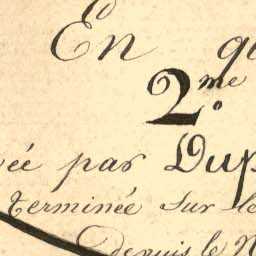 En q
2.me
ée par Dup
terminée Sur le
Depuis le N